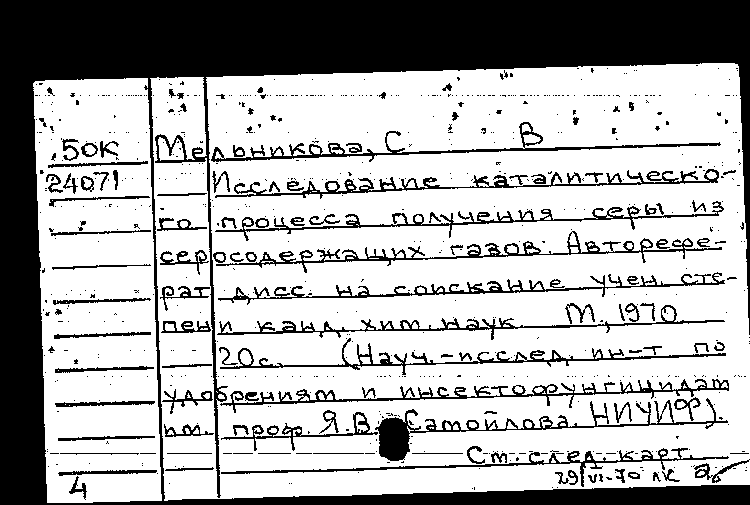 50К Мельникова, С В
24071 Исследование каталитическо-
го процесса получения серы из
серосодержащих газов. Авторефе-
рат дисс. на соискание учен. сте-
пени канд. хим. наук. М., 1970
20с. (Науч.-исслед. ин-т по
удобрениям и инсектофунгицидам
им. проф. Я.В. Самойлова. НИУИФ).
См. след. карт.
4 29/VI-70 лк